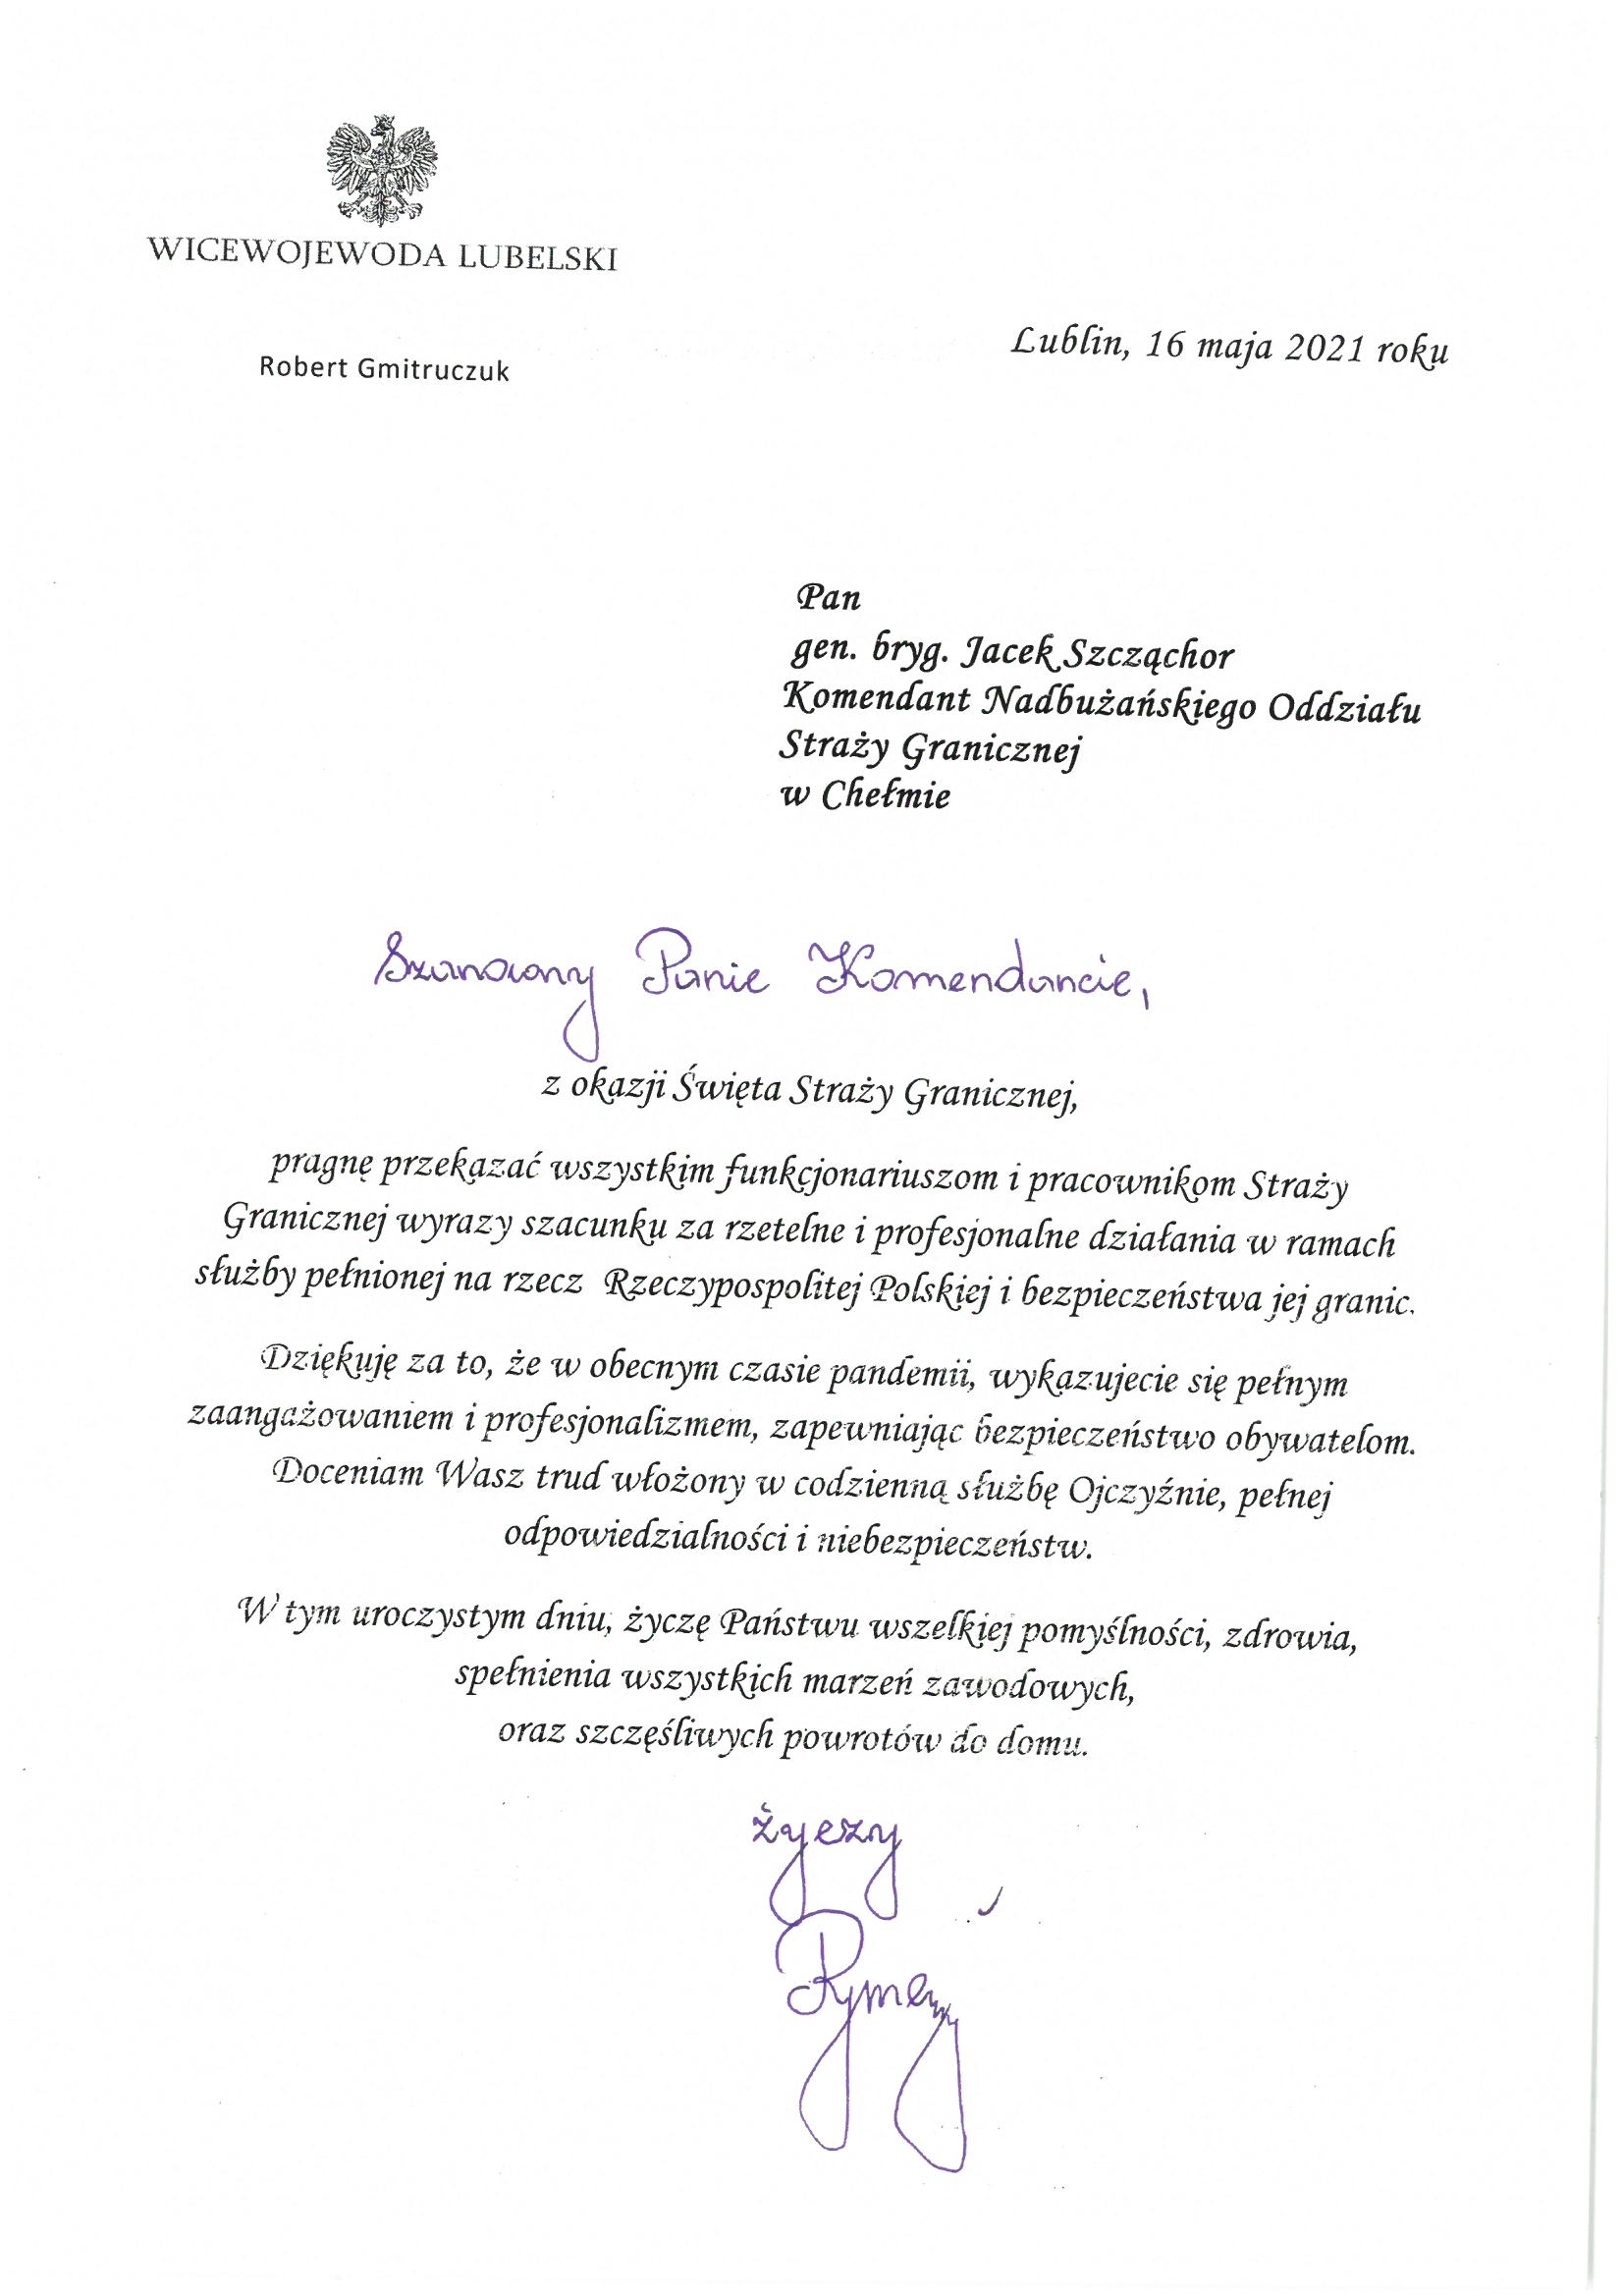 WICEWOJEWODA LUBELSKI
Robert Gmitruczuk
Lublin, 16 maja 2021 roku
Pan
gen. bryg. Jacek Szcząchor
Komendant Nadbużańskiego Oddziału
Straży Granicznej
w Chełmie
Szanowny Panie Komendancie,
z okazji Święta Straży Granicznej,
pragnę przekazać wszystkim funkcjonariuszom i pracownikom Straży
Granicznej wyrazy szacunku za rzetelne i profesjonalne działania w ramach
służby pełnionej na rzecz Rzeczypospolitej Polskiej i bezpieczeństwa jej granic.
Dziękuję za to, że w obecnym czasie pandemii, wykazujecie się pełnym
zaangażowaniem i profesjonalizmem, zapewniając bezpieczeństwo obywatelom.
Doceniam Wasz trud włożony w codzienną służbę Ojczyźnie, pełnej
odpowiedzialności i niebezpieczeństw.
W tym uroczystym dniu, życzę Państwu wszelkiej pomyślności, zdrowia,
spełnienia wszystkich marzeń zawodowych,
oraz szczęśliwych powrotów do domu.
Życzy